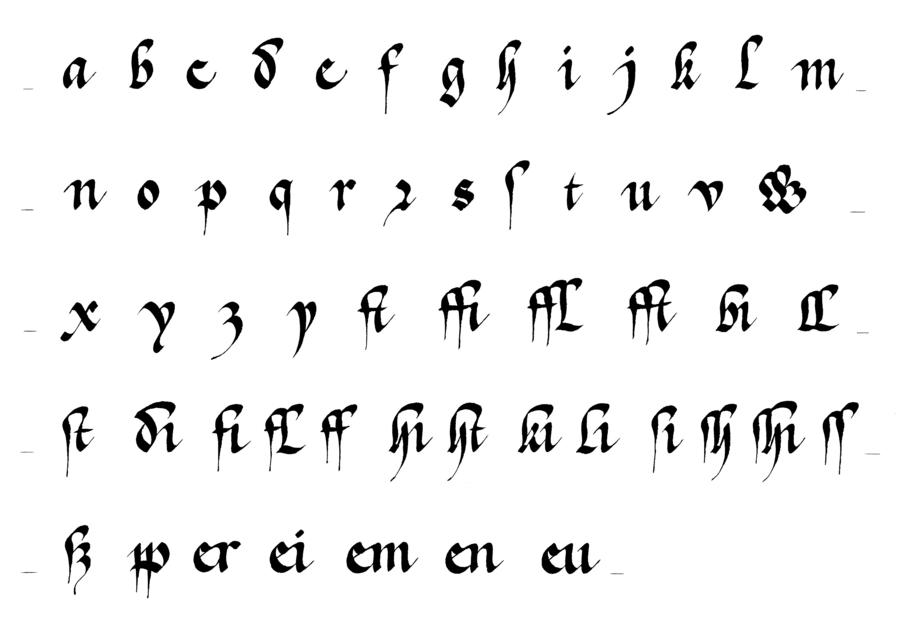 a b c d e f g h i j k l m
n o p q r ꝛ s ſ t u v w
x y z y ft ffi ffl fft bi ll
ſt di fi fl ff hi ht ki li ſi ſh ſhi ſſ
ß pp er ei em en eu